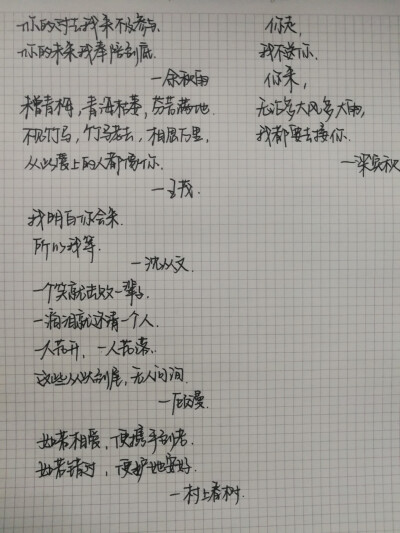 你的过去我来不及参与.
你的未来我奉陪到底.
—余秋雨
青梅，青梅枯萎，芬芳满地.
不见竹马，竹马老去，相思万里.
从此爱上的人都像你.
我明白你会来.
所以我等.
—沈从文
一个笑就击败一辈子.
一滴泪就还清一个人.
一人花开，一人花落.
这些从头到尾，无人问询.
—顾漫
如若相爱，便携手到老.
如若错过，便护他安好.
—村上春树.
你走，
我不送你.
你来，
无论多大风多大雨，
我都要去接你.
—梁实秋